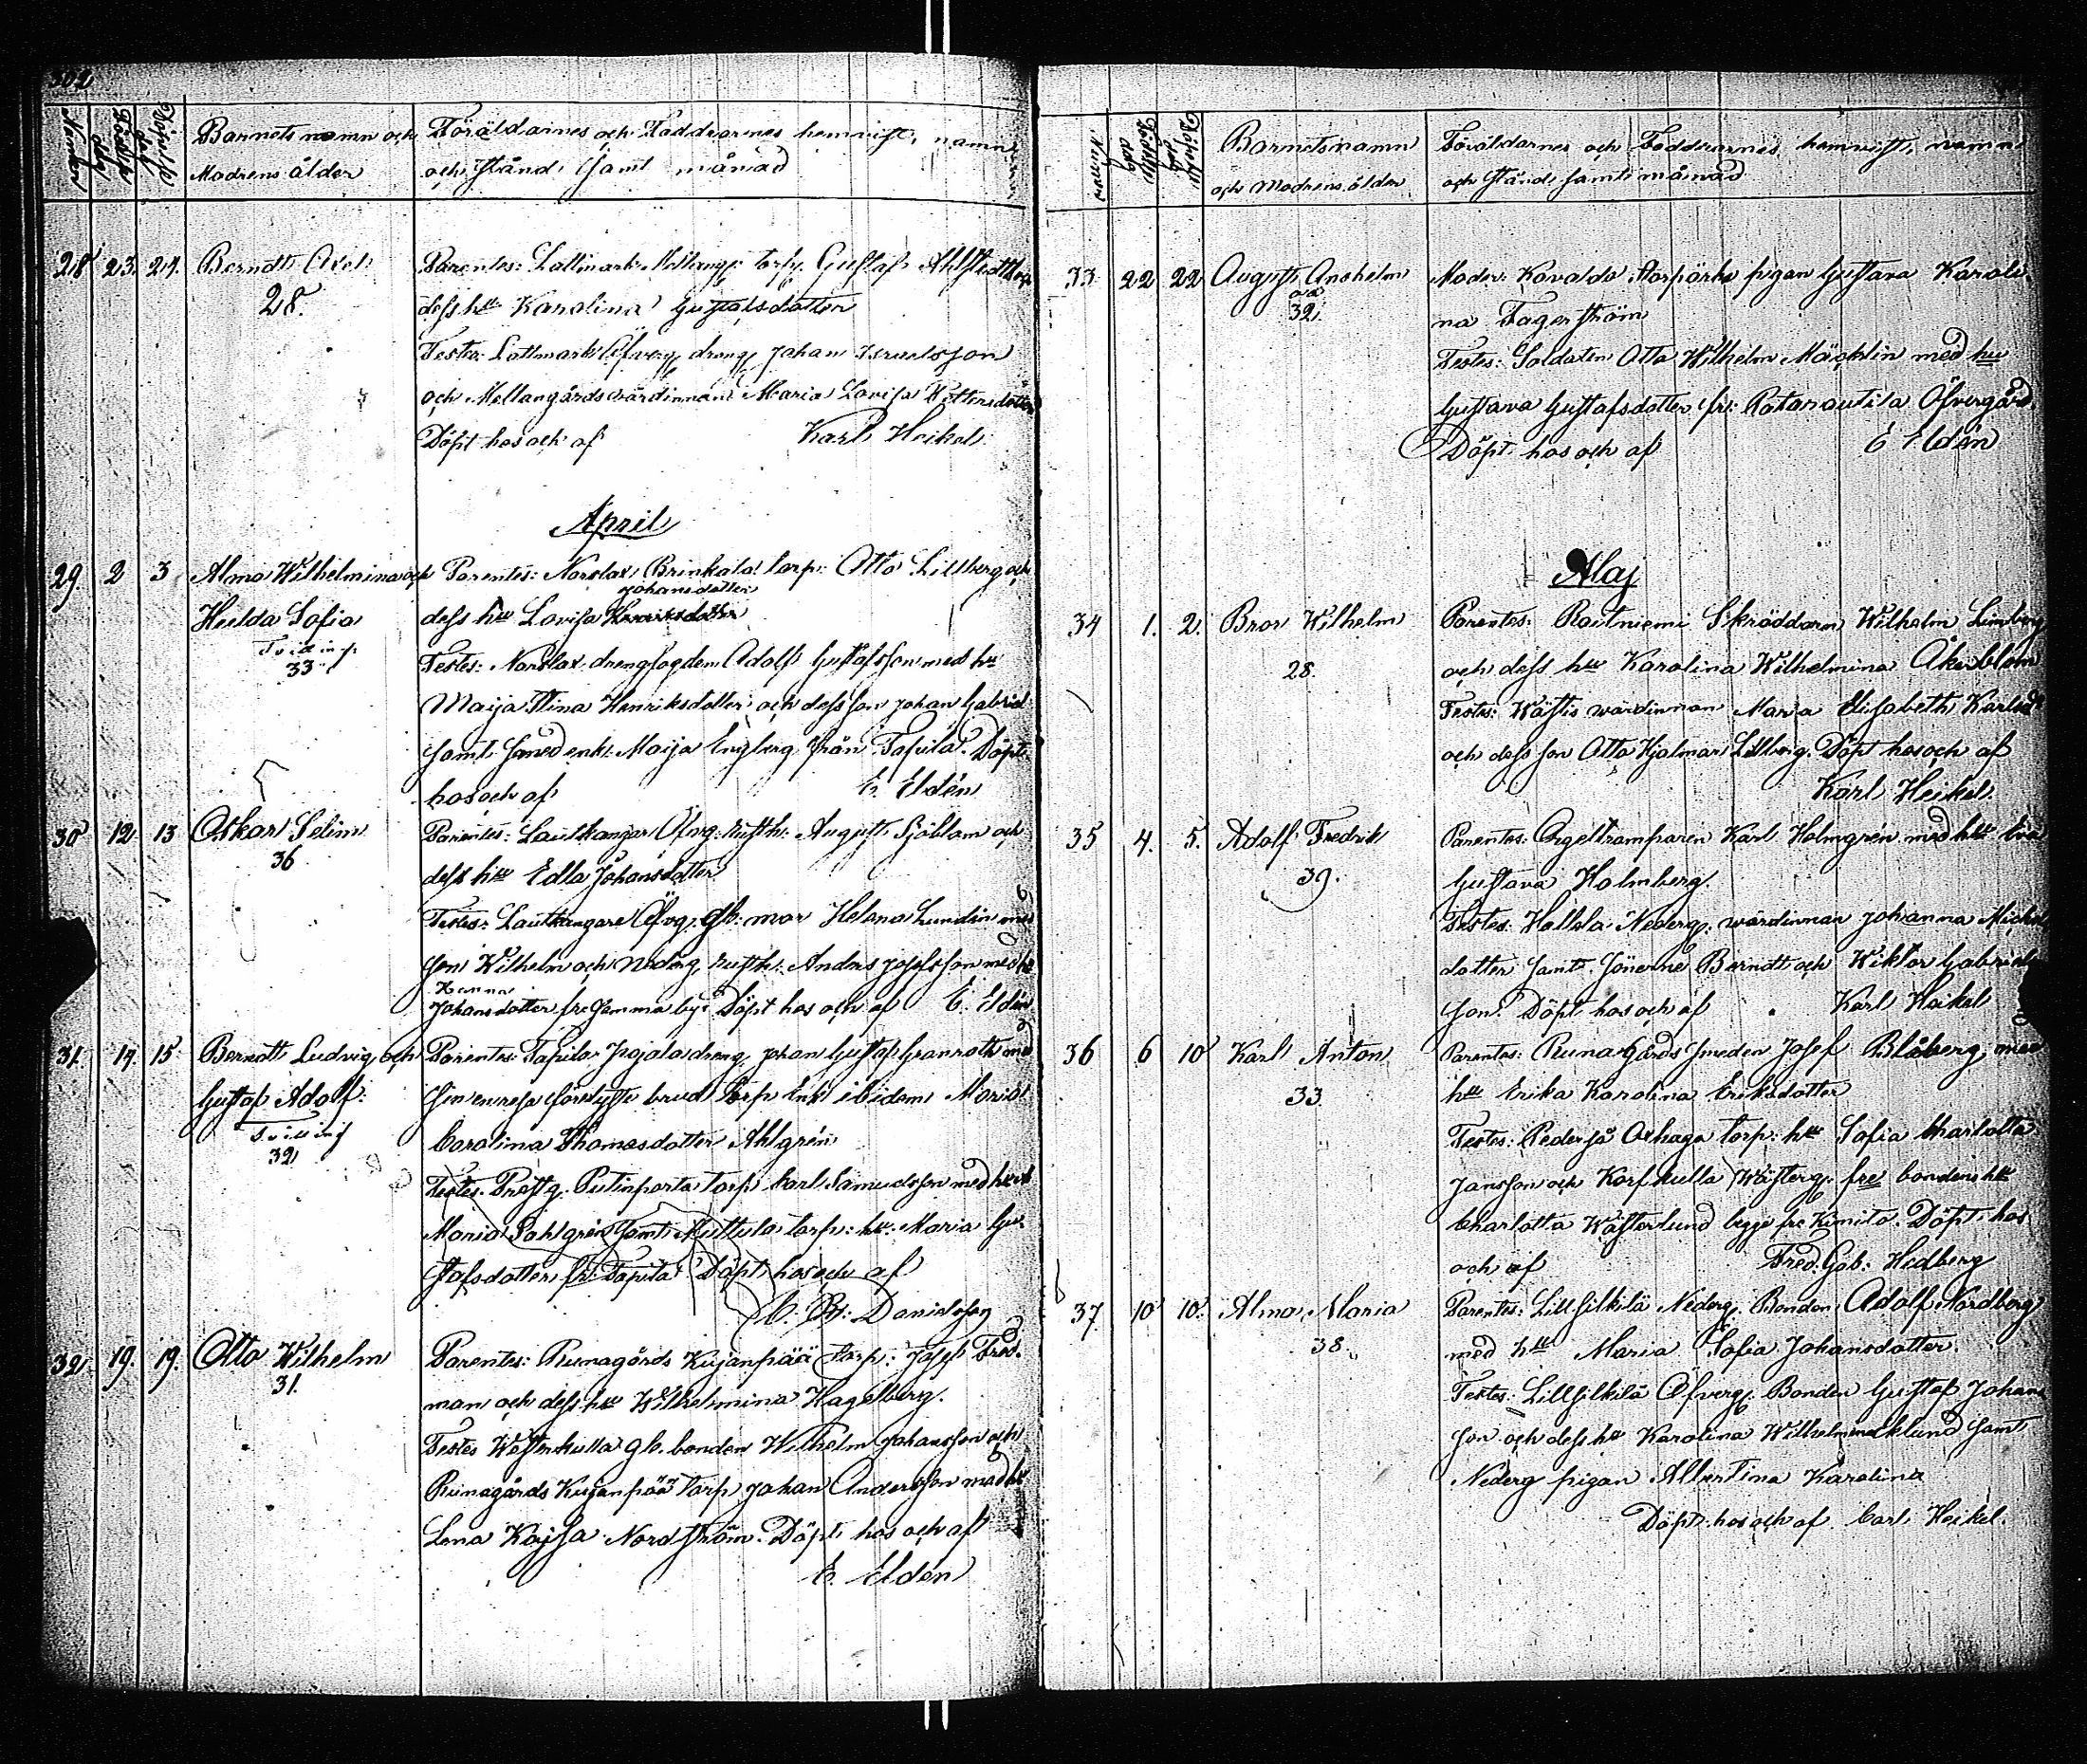 Barnets namn och
Modrens ålder
Föräldarnes och Faddrarnes hemvist, namn
och stånd samt månad
28 23. 24. Berndt Axel
28.
Parentes: Mellang. torp. Gustaf
dess hu Karolina Gustafsdotter
Testes: Öfverg. dreng Johan Israelsson
och Mellangårds värdinnan Maria Lovisa Pettersdotter
Döpt hos och af Karl Heikel
April
29. 2 3 Alma Wilhelmina och
Hulda Sofia
Tvilling
33
Parentes: Norrlax Brinkala torp: Otto Lillberg och
Johansdotter
dess hu Lovisa Henriksdotter
Testes: Norrlax drengfogden Adolf Gustafsson med hu
Maija Stina Henriksdotter och dess son Johan Gabriel
samt enk: Maija Engberg från Tapila. Döpt
hos och af E. Eldén
30 12 13 Oskar Selim
36
Parentes: Lautkangar Öfvg. rusth: August Sjöblom och
dess hu Edla Johansdotter
Testes: Lautkangare Öfvg. gb: mor Helena Lundin med
son Wilhelm och Nederg. rusth: Anders Josefsson med hu
Hanna
Johansdotter fr. Jemma by. Döpt hos och af E. Eldén
31. 14. 15. Berndt Ludvig och
Gustaf Adolf
Tvilling
32
Parentes: Tapila dreng Johan Gustaf Granroth med
sin brud Torp Enk: ibidem Maria
Carolina Thomasdotter Ahlgrén
Testes: Prestg. torp Carl Samuelsson med hu
Maria samt torp: hu: Maria Gu-
stafsdotter fr. Tapila Döpt hos och af
Danielsson
32. 19. 19. Otto Wilhelm
31.
Parentes: Runagårds Kujanpää torp: Josef Fred-
man och dess hu Wilhelmina Hagelberg.
Testes Westerkulla gb. bonden Wilhelm Johansson och
Runagårds Kujanpää torp Johan Andersson med hu
Lena Kajsa Nordström. Döpt hos och af
E. Eldén
Barnets namn
och Modrens ålder
Föräldarnes och Faddrarnes hemvist, namn
och stånd samt månad
33 22 22 August Anshelm
32.
Moder: Korvala pigan Gustava Karoli-
na Fagerström
Testes: Soldaten Otto Wilhelm Mäcklin med hu
Gustava Gustafsdotter fr: Öfvergård.
Döpt hos och af E Eldén
Maj
34 1. 2. Bror Wilhelm
28.
Parentes: Raitniemi Skräddarn Wilhelm Limberg
och dess hu Karolina Wilhelmina Åkerblom
Testes: Wäftis wärdinnan Maria Elisabeth Karlsd
och dess son Otto Hjalmar Lillberg. Döpt hos och af
Karl Heikel.
35 4. 5. Adolf Fredrik
39.
Parentes: Orgeltramparen Karl Holmgrén med hu Eva
Gustava Holmberg.
Testes: Nederg. wärdinnan Johanna Michels
dotter samt Sönerne Berndt och Wiktor Gabriels
son. Döpt hos och af Karl Heikel
36 6 10 Karl Anton
33
Parentes: Runagårds smeden Josef Blåberg med
hu Erika Karolina Eriksdotter
Testes: Pedersjö Oxhaga torp: hu Sofia Charlotta
Jansson och Korskulla Wästerg. fre bondens hu
Charlotta Wästerlund begge fr. Kimito. Döpt hos
och af Fred. Gab: Hedberg
37. 10 10. Alma Maria
38.
Parentes: Lillsilkilä Nederg. Bonden Adolf Nordberg
med hu Maria Sofia Johansdotter.
Testes: Lillsilkilä Öfverg. Bonden Gustaf Johans
son och dess hu Karolina Wilhelmina Eklund samt
Nederg pigan Albertina Karolina
Döpt hos och af Carl Heikel.